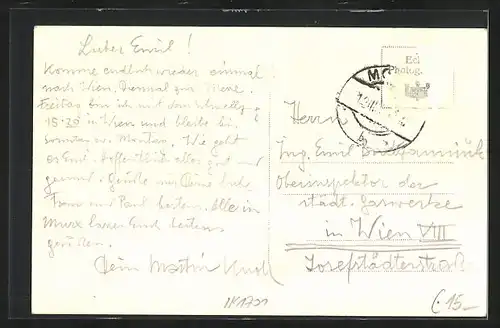 Lieber Emil!
Komme endlich wieder einmal
nach Wien, diesmal zur Messe.
Freitag bin ich mit dem Schnellzug
18·20 in Wien und bleibe bis
Sonntag od. Montag. Wie geht
es Euch? Hoffentlich alles gut und
gesund. Grüße mir Deine liebe
Frau und Paul bestens. Alle in
lassen Euch bestens
grüßen.
Dein Martin
Herrn
Ing. Emil
Oberinspektor der
städt. Gaswerke
in Wien VIII
Josefstädterstraße
Photog.
(.15-